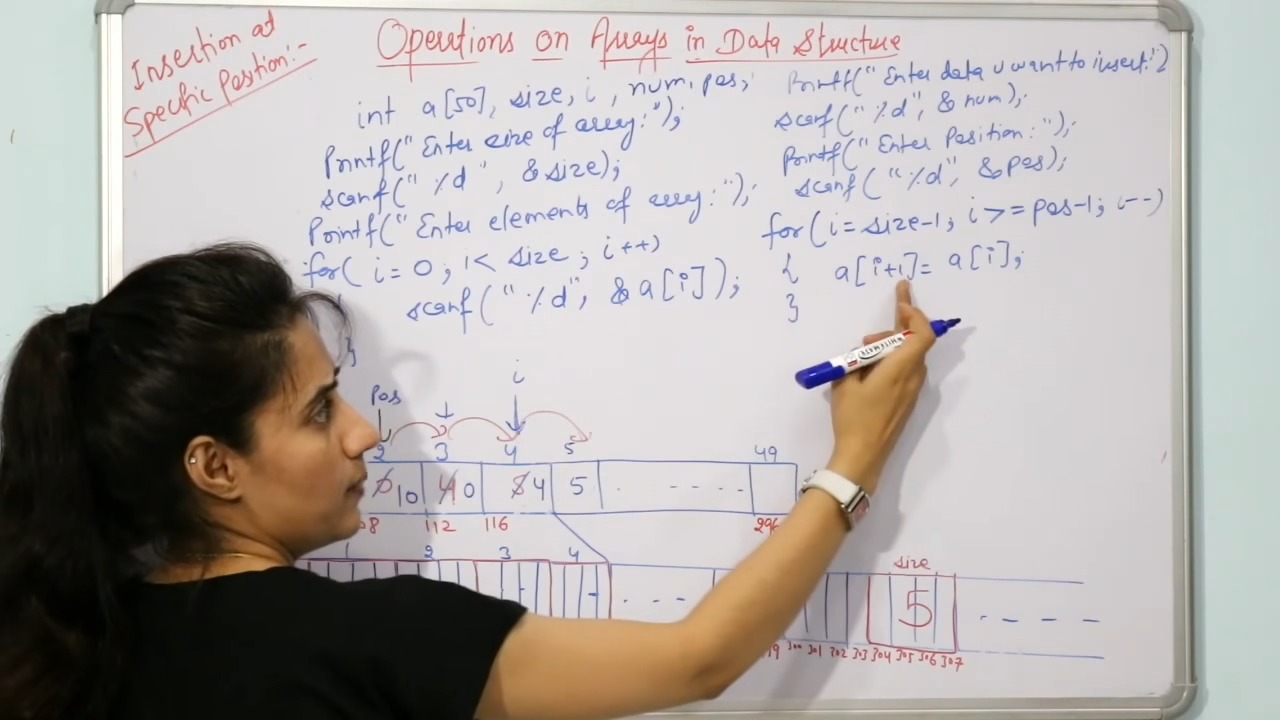 Insertion at
Specific Position:-
Operations on Arrays in Data Structure
int a[50], size, i, num, pos;
Printf("Enter size of array:");
scanf("%d", &size);
Printf("Enter elements of array:");
for( i=0; i< size; i++)
scanf("%d", &a[i]);
}
Printf("Enter data u want to insert:")
scanf("%d", &num);
Printf("Enter Position:");
scanf("%d", &pos);
for(i=size-1; i>=pos-1; i--)
{ a[i+1]= a[i];
}
i
Pos
2 3 4 5 49
6 10 4 0 5 4 5 . - - - - .
112 116
1 2 3 4
size
5
300 301 302 303 304 305 306 307
WHITEMATE